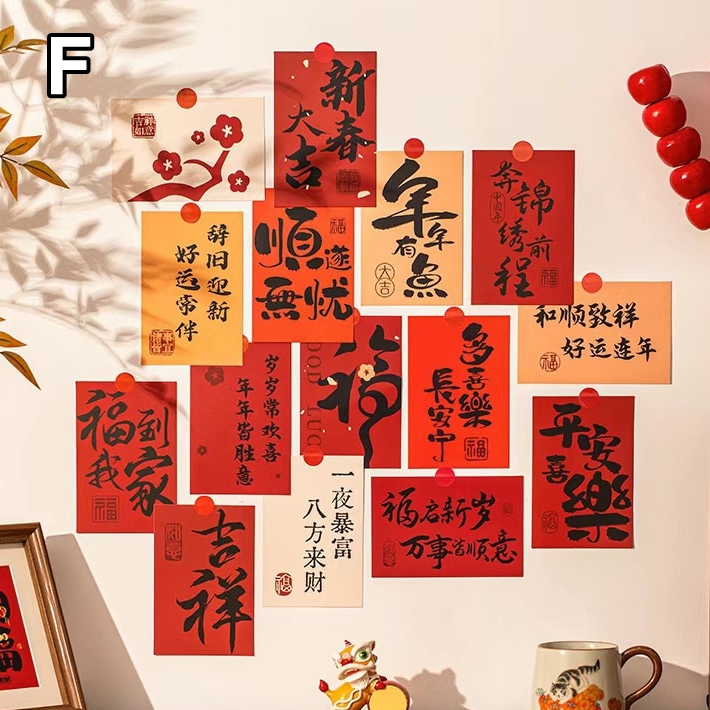 F
吉祥
如意
新春
大吉
年年
有魚
大吉
奔
錦
绣
前
程
福
辞旧迎新
好运常伴
順遂
無忧
福
和顺致祥
好运连年
福
岁岁常欢喜
年年皆胜意
GOOD LUC
多喜樂
長安宁
福
福到
我家
福
平安
喜樂
一夜暴富
八方来财
福
福启新岁
万事皆顺意
吉祥
福